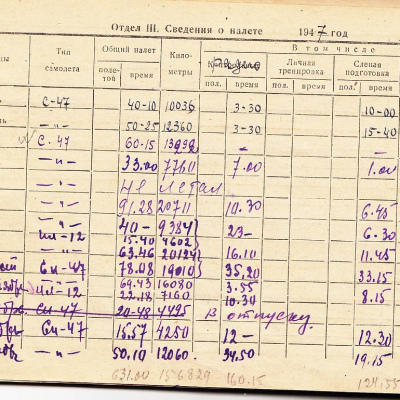 Отдел III. Сведения о налете 1947 год
Тип самолета
Общий налет
Кило- метры
В том числе
полетов время
Радио
пол. время
Личная тренировка
пол. время
Слепая подготовка
пол. время
С-47 40-10 10036 3-30 10-00
—"— 50-25 12360 3-30 15-40
С-47 60-15 13992 — —
—"— 33.00 7760 7.00 1.00
—"— не летал
—"— 91.28 20711 10.30 6.45
—"— 40- 9384 23- 6.30
Ил-12 15.40 4602
—"— 63.46 20124 16.10 11.45
Си-47 78.08 19010 35,20 33.15
Ил-12 69.43 16080 3.55 8.15
22.18 7160 10.30
Си-47 20-48 4495 в отпуску.
Си-47 15.57 4250 12- 12.30
—"— 50,10 12060. 34.50 19.15
631.00 156829 160.15 124.55